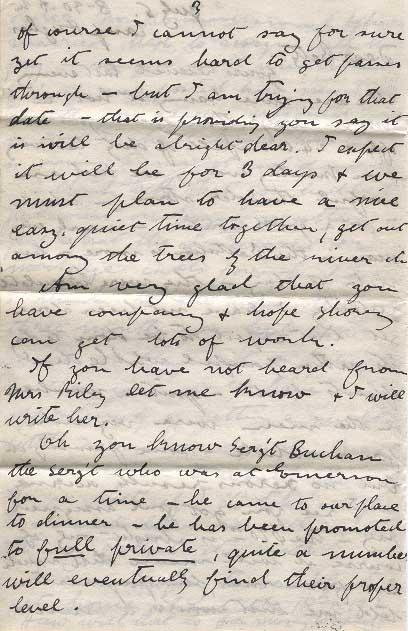 3
of course I cannot say for sure
yet it seems hard to get passes
through – but I am trying for that
date – that is providing you say it
is will be alright dear. I expect
it will be for 3 days & we
must plan to have a nice
easy, quiet time together, get out
among the trees & the river etc
Am very glad that you
have company & hope
can get lots of work.
If you have not heard from
Mrs Riley let me know & I will
write her.
Oh you know Serg't Buchan
the Serg't who was at Emerson
for a time – he came to our place
to dinner – he has been promoted
to full private, quite a number
will eventually find their proper
level.